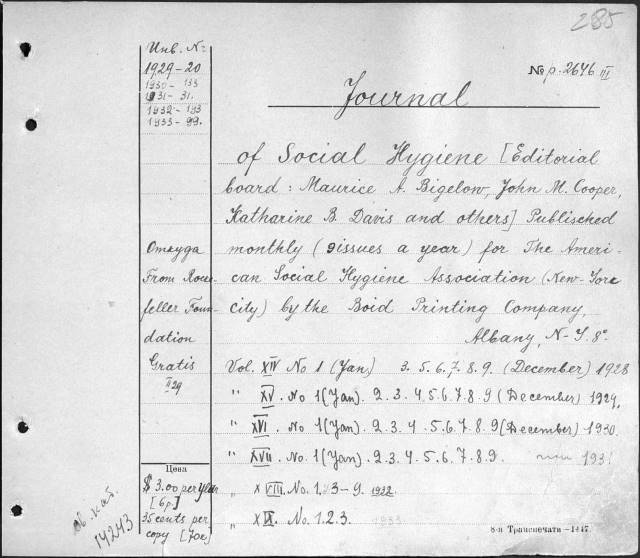 285
Инв. №
1929-20
1930-133
1931-31.
1932-193
1933-99.
№ p. 2646 III
Journal
of Social Hygiene [Editorial
board: Maurice A. Bigelow, John M. Cooper,
Katharine B. Davis and others] Publisched
monthly (9 issues a year) for The Ameri-
can Social Hygiene Association (New-Yorc
city) by the Boid Printing Company,
Albany, N-Y. 8°
Откуда
From Roce-
feller Foun-
dation
Gratis
II 29
Vol. XIV No 1 (Jan) 3. 5. 6. 7. 8. 9. (December) 1928
" XV. No 1 (Jan). 2. 3. 4. 5. 6. 7. 8. 9 (December) 1929.
" XVI. No 1 (Jan). 2. 3. 4. 5. 6. 7. 8. 9 (December) 1930.
" XVII. No 1 (Jan). 2. 3. 4. 5. 6. 7. 8. 9. 1931
" XVIII. No. 1. 3-9. 1932.
" XIX. No. 1. 2. 3. 1933
Цена
$ 3.00 per year
[6 р.]
35 cents per
copy [70 к]
14243
8-я Транспечати—1447.